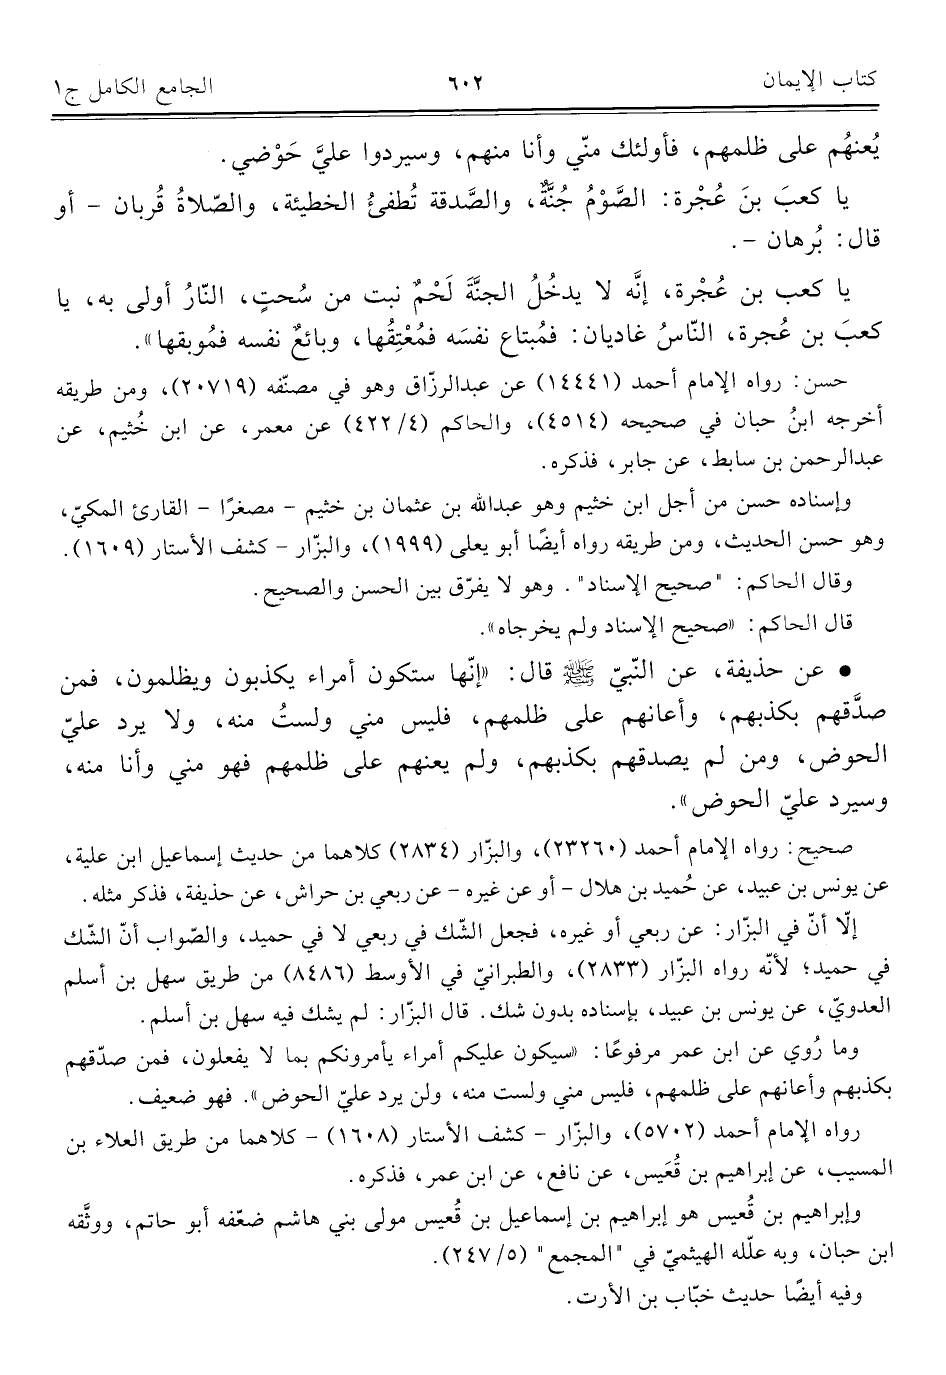 كتاب الإيمان ٦٠٢ الجامع الكامل ج١
يُعنهُم على ظلمهم، فأولئك منّي وأنا منهم، وسيردوا عليَّ حَوْضي.
يا كعبَ بنَ عُجْرة: الصَّوْمُ جُنَّةٌ، والصَّدقة تُطفئُ الخطيئة، والصّلاةُ قُربان – أو
قال: بُرهان –.
يا كعب بن عُجْرة، إنَّه لا يدخُلُ الجنَّةَ لَحْمٌ نبت من سُحتٍ، النّارُ أولى به، يا
كعبَ بن عُجرة، النّاسُ غاديان: فمُبتاع نفسَه فمُعْتِقُها، وبائعٌ نفسه فمُوبقها».
حسن: رواه الإمام أحمد (١٤٤٤١) عن عبدالرزّاق وهو في مصنّفه (٢٠٧١٩)، ومن طريقه
أخرجه ابنُ حبان في صحيحه (٤٥١٤)، والحاكم (٤/ ٤٢٢) عن معمر، عن ابن خُثيم، عن
عبدالرحمن بن سابط، عن جابر، فذكره.
وإسناده حسن من أجل ابن خثيم وهو عبدالله بن عثمان بن خثيم – مصغرًا – القارئ المكيّ،
وهو حسن الحديث، ومن طريقه رواه أيضًا أبو يعلى (١٩٩٩)، والبزّار – كشف الأستار (١٦٠٩).
وقال الحاكم: "صحيح الإسناد". وهو لا يفرّق بين الحسن والصحيح.
قال الحاكم: «صحيح الإسناد ولم يخرجاه».
• عن حذيفة، عن النّبيّ ﷺ قال: «إنّها ستكون أمراء يكذبون ويظلمون، فمن
صدَّقهم بكذبهم، وأعانهم على ظلمهم، فليس مني ولستُ منه، ولا يرد عليّ
الحوض، ومن لم يصدقهم بكذبهم، ولم يعنهم على ظلمهم فهو مني وأنا منه،
وسيرد عليّ الحوض».
صحيح: رواه الإمام أحمد (٢٣٢٦٠)، والبزّار (٢٨٣٤) كلاهما من حديث إسماعيل ابن علية،
عن يونس بن عبيد، عن حُميد بن هلال – أو عن غيره – عن ربعي بن حراش، عن حذيفة، فذكر مثله.
إلّا أنّ في البزّار: عن ربعي أو غيره، فجعل الشّك في ربعي لا في حميد، والصّواب أنّ الشّك
في حميد؛ لأنّه رواه البزّار (٢٨٣٣)، والطبرانيّ في الأوسط (٨٤٨٦) من طريق سهل بن أسلم
العدويّ، عن يونس بن عبيد، بإسناده بدون شك. قال البزّار: لم يشك فيه سهل بن أسلم.
وما رُوي عن ابن عمر مرفوعًا: «سيكون عليكم أمراء يأمرونكم بما لا يفعلون، فمن صدّقهم
بكذبهم وأعانهم على ظلمهم، فليس مني ولست منه، ولن يرد عليّ الحوض». فهو ضعيف.
رواه الإمام أحمد (٥٧٠٢)، والبزّار – كشف الأستار (١٦٠٨) – كلاهما من طريق العلاء بن
المسيب، عن إبراهيم بن قُعَيس، عن نافع، عن ابن عمر، فذكره.
وإبراهيم بن قُعيس هو إبراهيم بن إسماعيل بن قُعيس مولى بني هاشم ضعّفه أبو حاتم، ووثَّقه
ابن حبان، وبه علّله الهيثميّ في "المجمع" (٥/ ٢٤٧).
وفيه أيضًا حديث خبّاب بن الأرت.